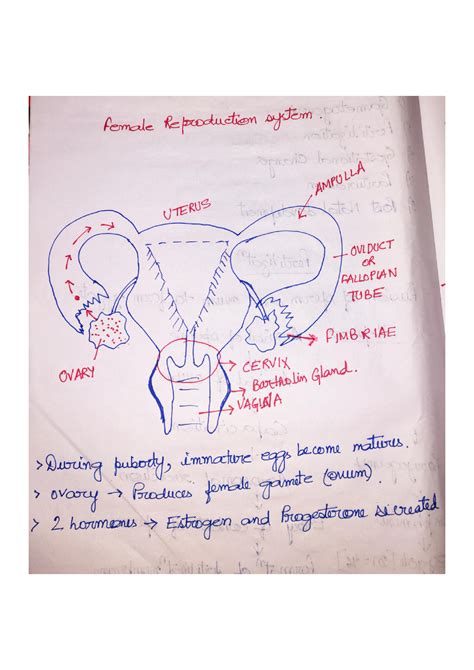 Female Reproduction system.
AMPULLA
UTERUS
OVIDUCT
OR
FALLOPIAN
TUBE
FIMBRIAE
OVARY
CERVIX
Bartholin Gland.
VAGINA
> During puborty, immature eggs become matures.
> ovary → Produces female gamete (ovum).
> 2 hormones → Estrogen and Progesterone secreated